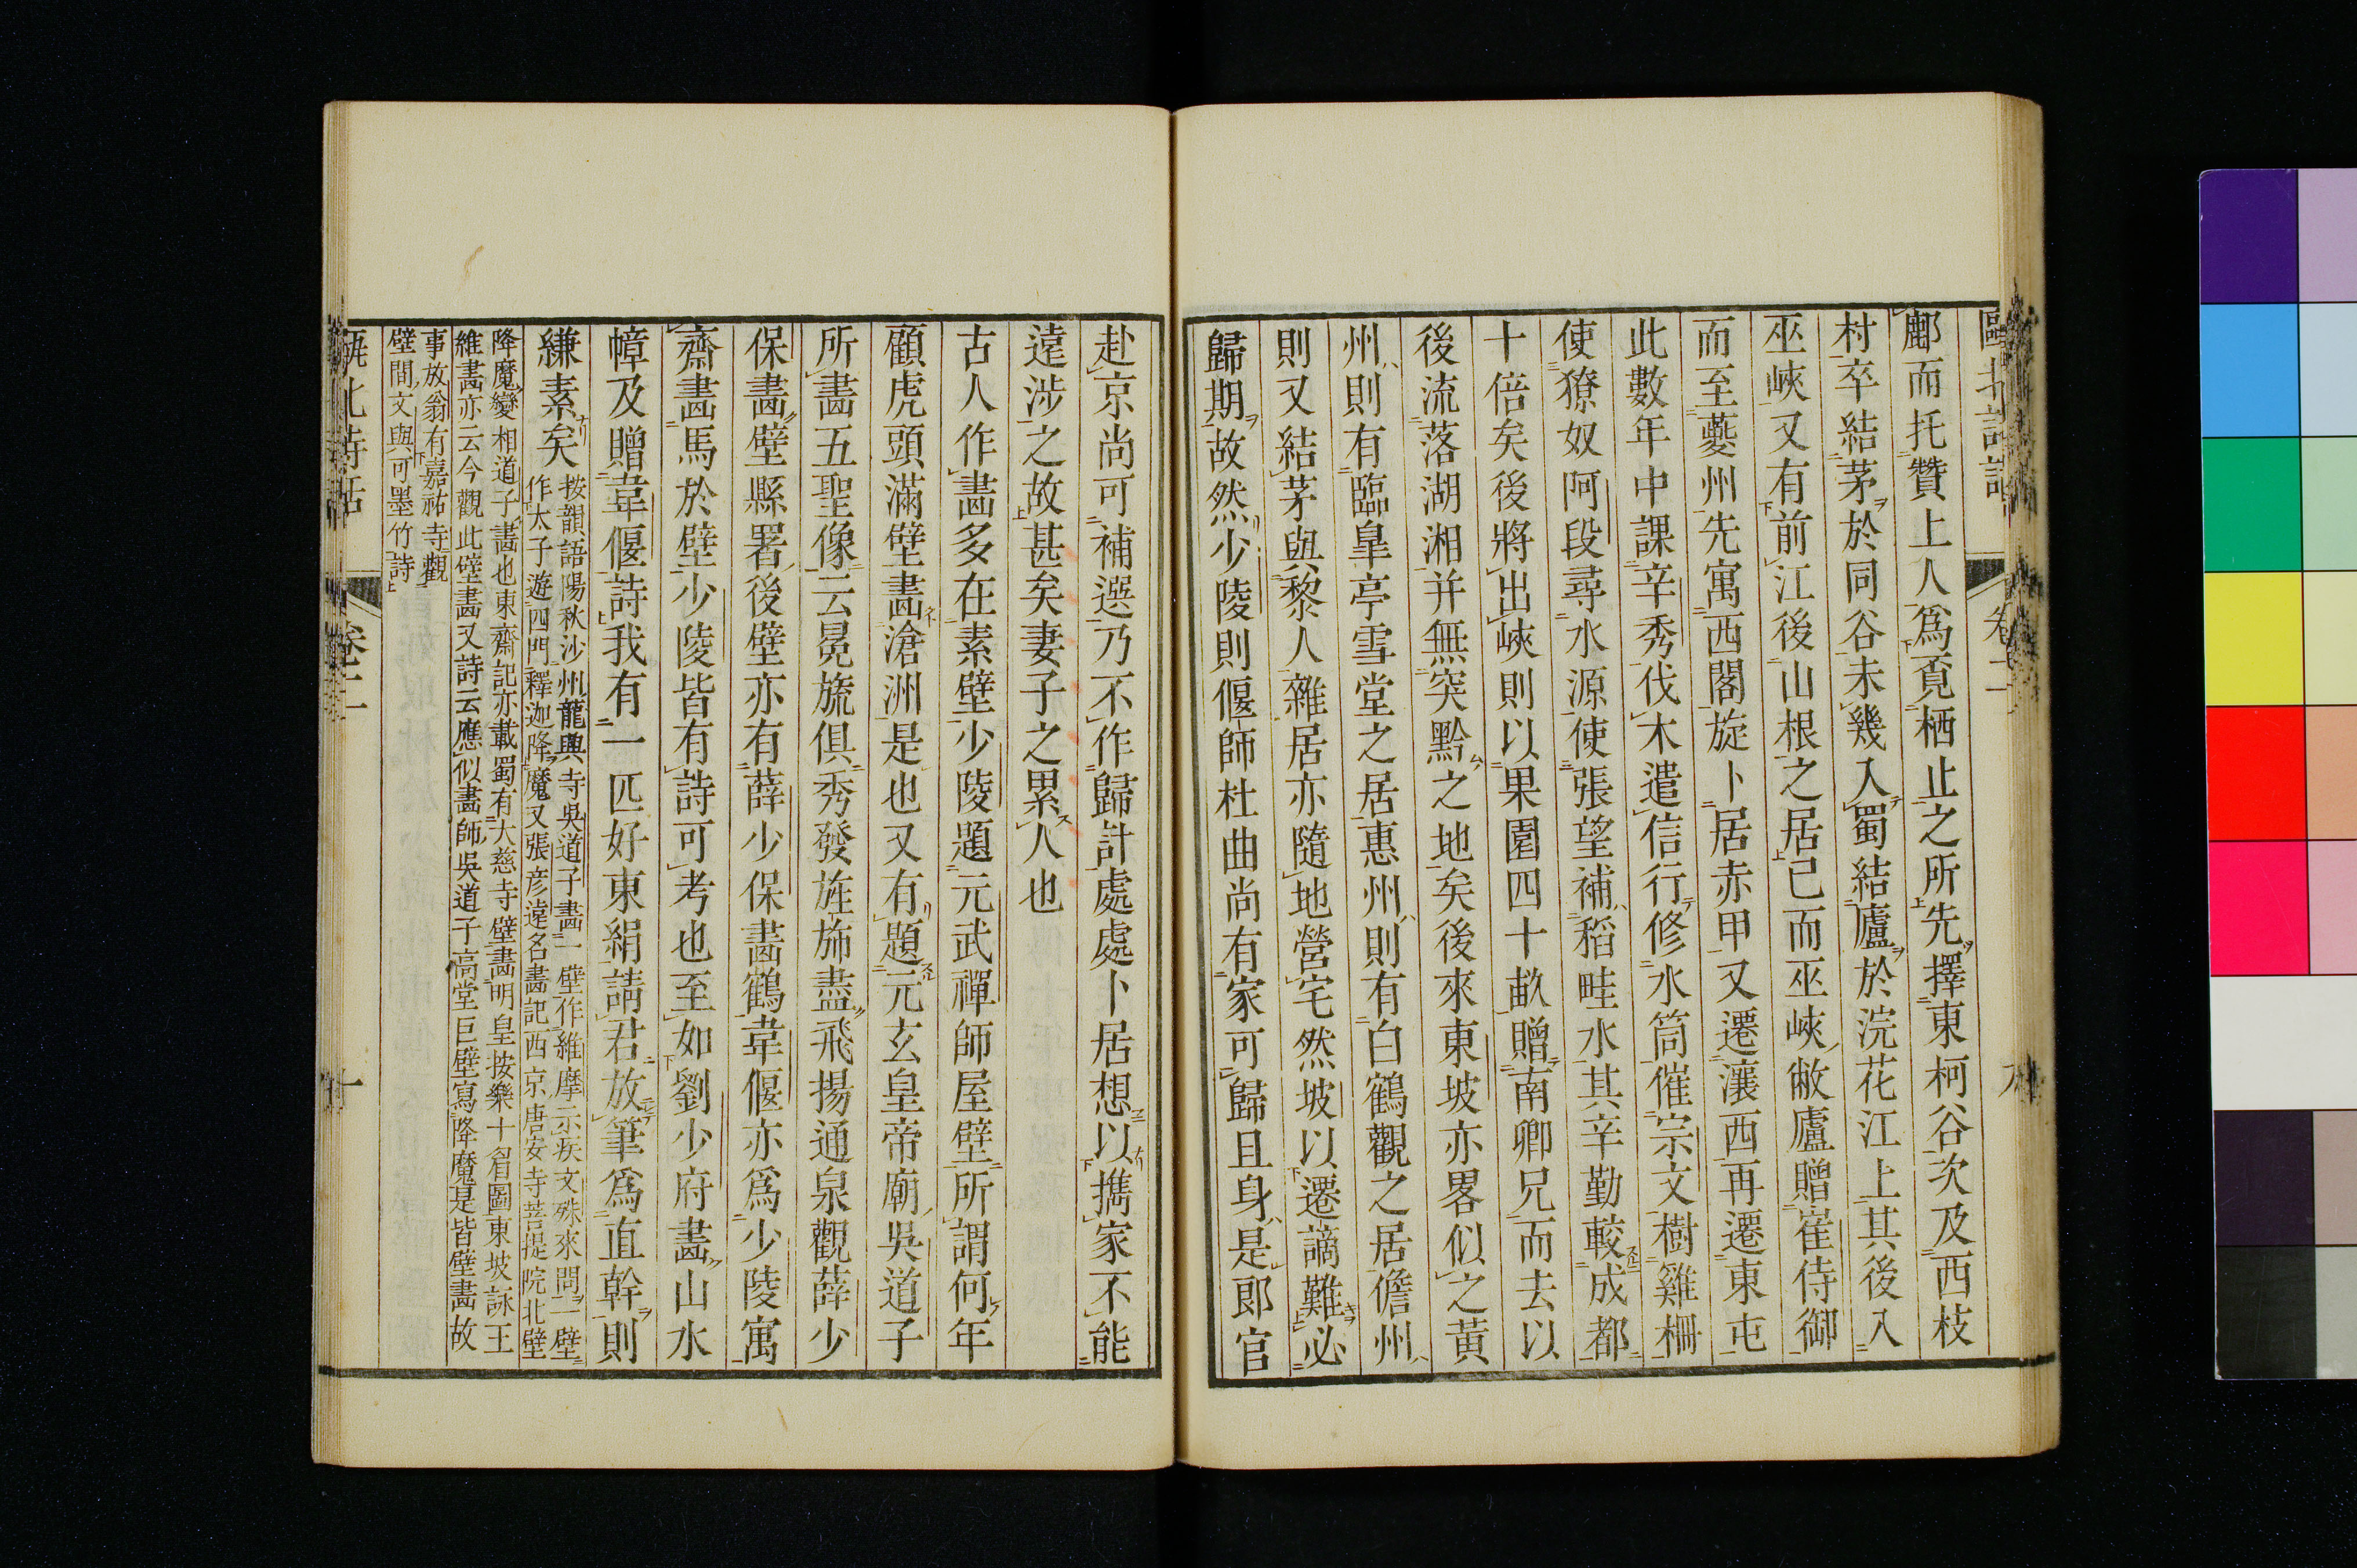 甌北詩話 卷二
鄜而托贊上人爲覓栖止之所先擇東柯谷次及西枝
村卒結茅於同谷未幾入蜀結廬於浣花江上其後入
巫峽又有前江後山根之居已而巫峽敝廬贈崔侍御
而至夔州先寓西閣旋卜居赤甲又遷瀼西再遷東屯
此數年中課辛秀伐木遣信行修水筒催宗文樹雞柵
使獠奴阿段尋水源使張望補稻畦水其辛勤較成都
十倍矣後將出峽則以果園四十畝贈南卿兄而去以
後流落湖湘并無突黔之地矣後來東坡亦畧似之黃
州則有臨皐亭雪堂之居惠州則有白鶴觀之居儋州
則又結茅與黎人雜居亦隨地營宅然坡以遷謫難必
歸期故然少陵則偃師杜曲尚有家可歸且身是郎官
赴京尚可補選乃不作歸計處處卜居想以擕家不能
遠涉之故甚矣妻子之累人也
古人作畵多在素壁少陵題元武禪師屋壁所謂何年
顧虎頭滿壁畵滄洲是也又有題元玄皇帝廟吳道子
所畵五聖像云冕旒俱秀發旌斾盡飛揚通泉觀薛少
保畵壁縣署後壁亦有薛少保畵鶴韋偃亦爲少陵寓
齋畵馬於壁少陵皆有詩可考也至如劉少府畵山水
幛及贈韋偃詩我有一匹好東絹請君放筆爲直幹則
縑素矣
按韻語陽秋沙州龍興寺吳道子畵一壁作維摩示疾文殊來問一壁
作太子遊四門釋迦降魔又張彦遠名畵記西京唐安寺菩提院北壁
降魔變相道子畵也東齋記亦載蜀有大慈寺壁畵明皇按樂十眉圖東坡詠王
維畵亦云今觀此壁畵又詩云應似畵師吳道子高堂巨壁寫降魔是皆壁畵故
事放翁有嘉祐寺觀
壁間文與可墨竹詩
甌北詩話 卷二 十